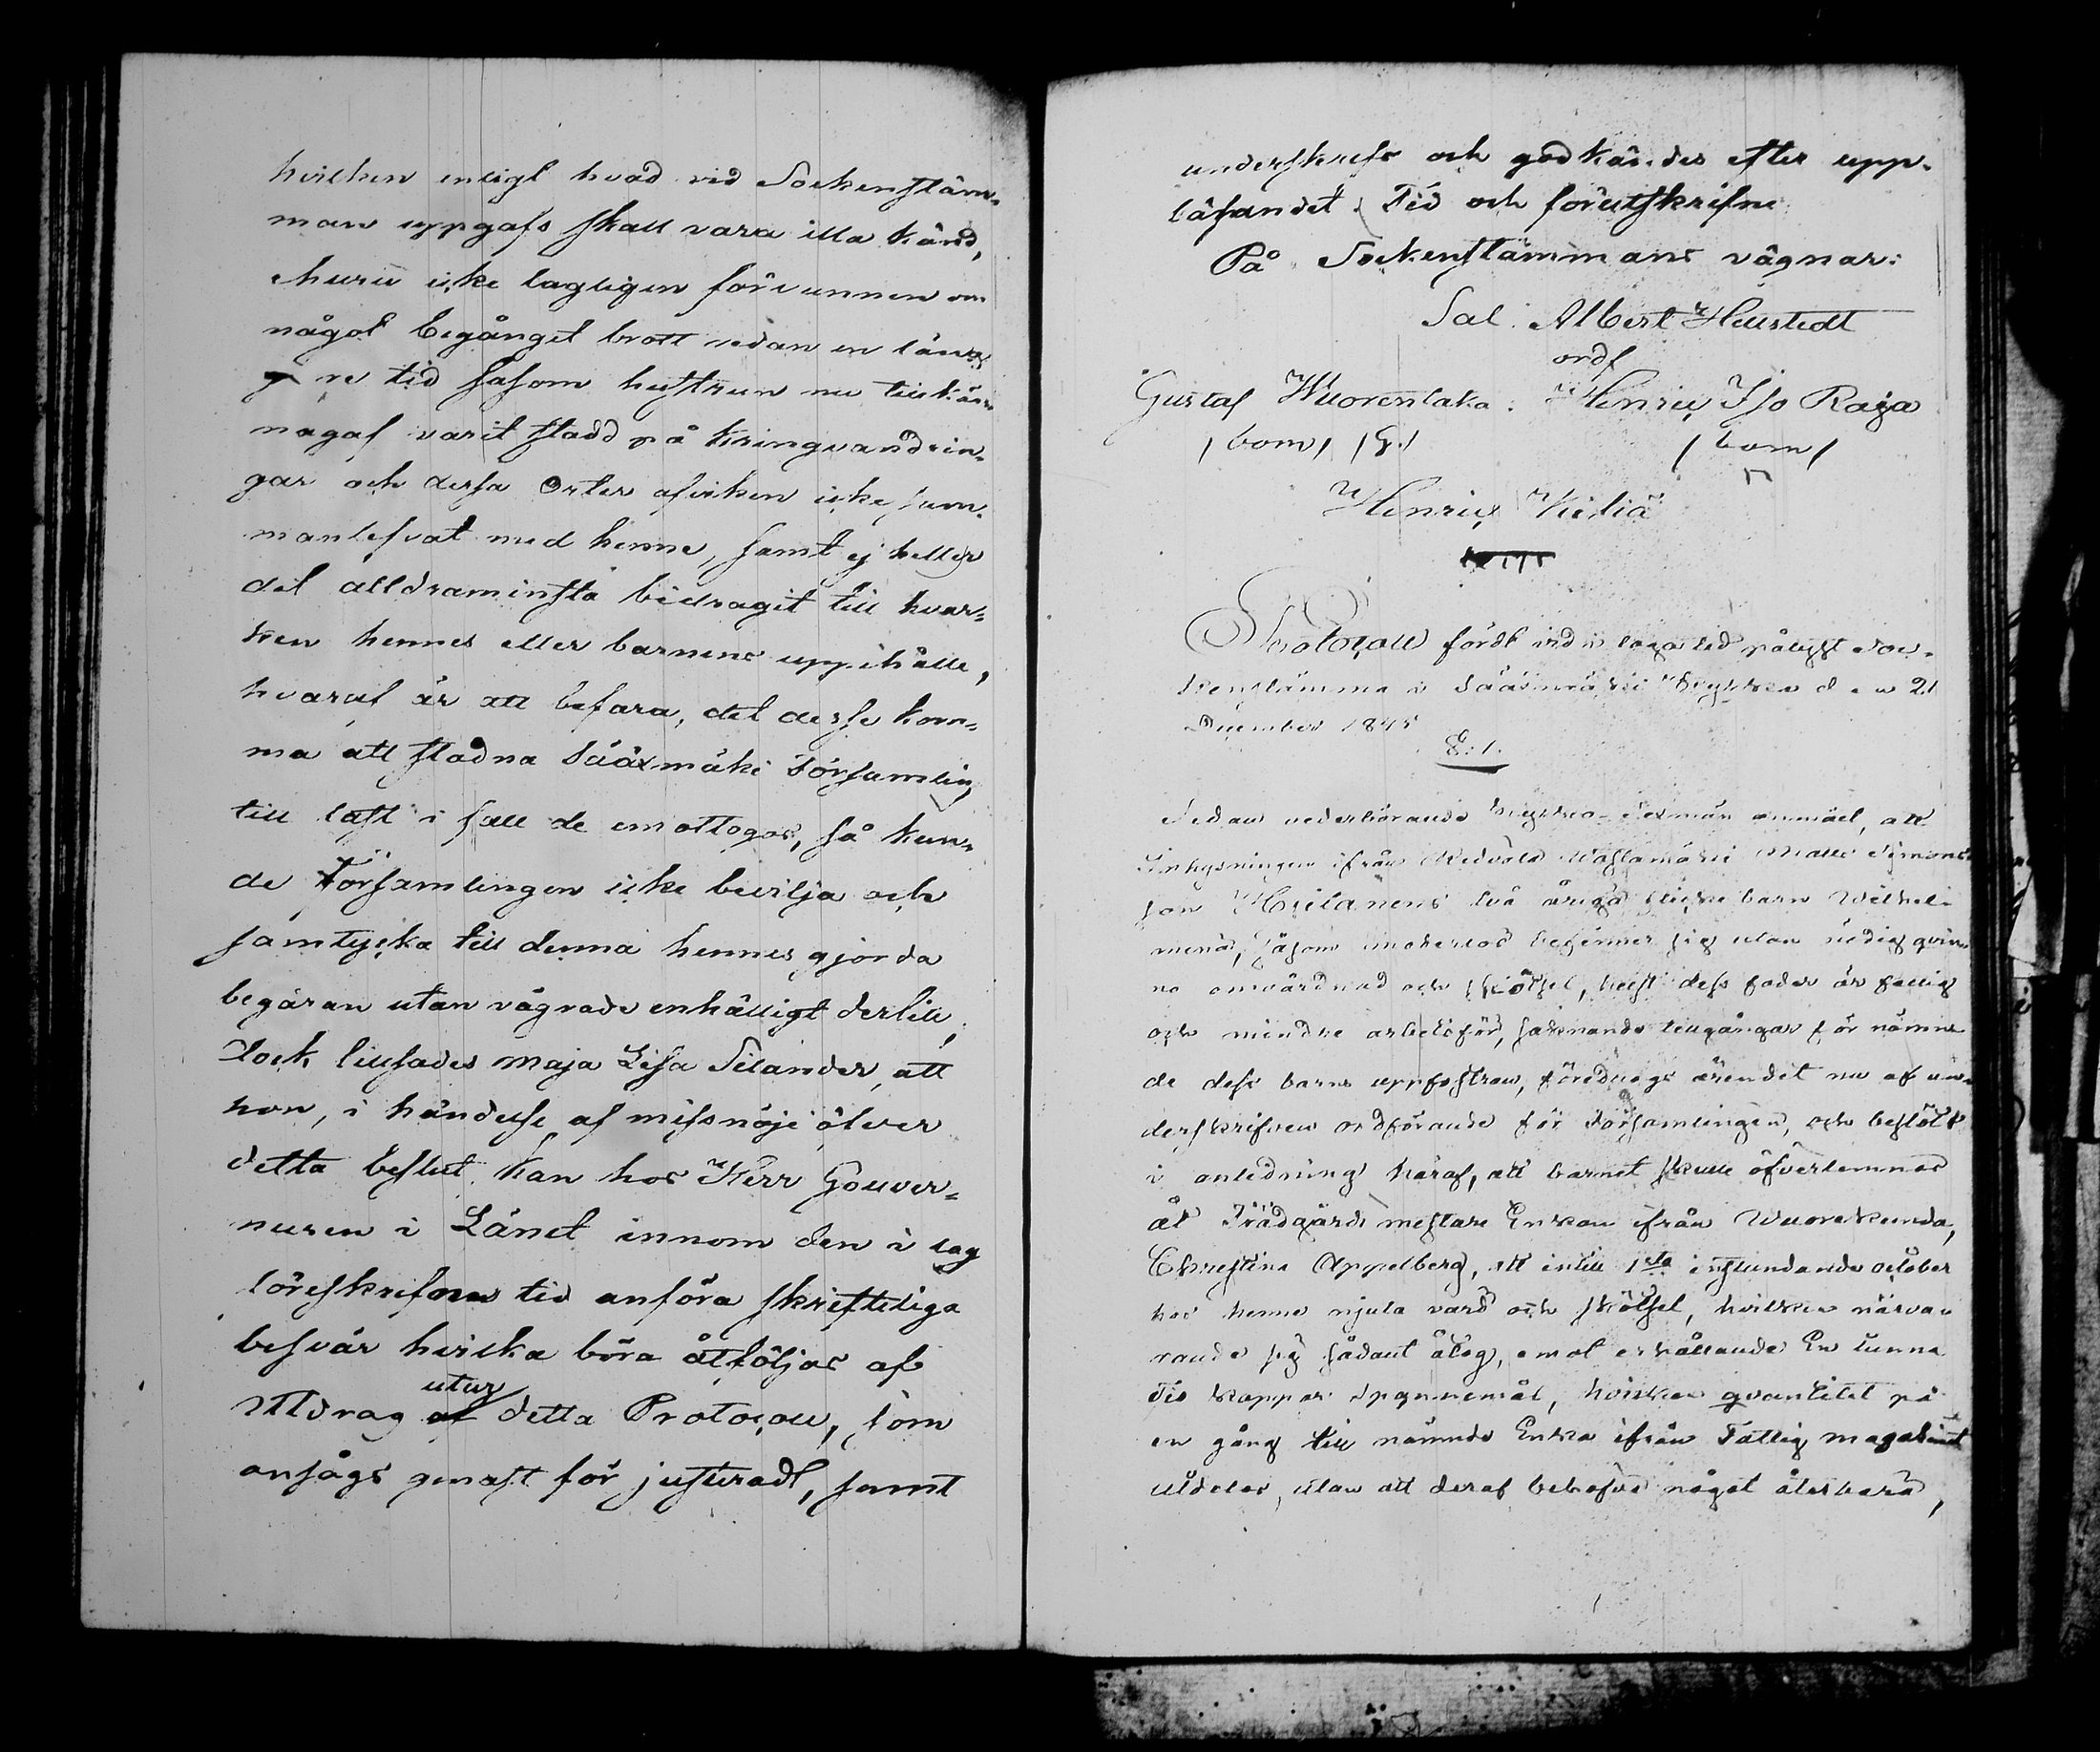 hvilken enligt hvad vid Sockenstäm-
man uppgafs skall vara illa känd,
ehuru icke lagligen förvunnen om
något begånget brott sedan en läng
re tid såsom hustrun nu tillkän-
nagaf varit stadd på kringvandrin-
gar och dessa Orter afviken icke sam-
manlefvat med henne, samt ej heller
det alldraminsta bidragit till hvar-
ken hennes eller barnens uppehälle,
hvaraf är att befara, det desse kom-
ma att stadna Sääxmäki Församling
till last i fall de emottogos, så kun-
de Församlingen icke bevilja och
samtycka till denna hennes gjorda
begäran utan vägrade enhälligt dertill;
dock lillsades Maja Lisa Silander, att
hon, i händelse af missnöje öfver
detta beslut kan hos Herr Gouver-
neuren i Länet innom den i lag
föreskrifna tid anföra skrifteliga
besvär hvilka böra åtföljas af
Utdrag utur detta Protocoll, som
ansågs genast för justeradt, samt
underskrefs och godkändes efter upp-
läsandet; Tid och förutskrifne
På Sockenstämmans vägnar:
Sal. Albert Hellstedt
ordf
Gustaf Wuorentaka. Henric Iso Raja
/bom/ /g./ /bom/
Henric Kiiliä
Protocoll fördt vid i laga tid pålyst Soc-
kenstämma i Sääxmäki Kyrka den 21
December 1845
§: 1.
Sedan vederbörande Kyrko-Sexmän anmält, att
Inhysningen ifrån Wedvala Matts Simons
son två åriga flicke barn Wilhel-
mina, såsom moderlös befinner sig utan nödig qvin-
no omvårdnad och skötsel, helst dess fader är fattig
och mindre arbetsför, saknande tillgångar för nämn-
de dess barns uppfostran, föredrogs ärendet nu af un-
derskrifven ordförande för Församlingen, och beslöts
i anledning häraf, att barnet skulle öfverlemnas
åt Trädgårds mestare Enkan ifrån Wuorekunda,
Christina Appelberg, att intill 1sta instundande october
hos henne njuta vård och skötsel, hvilken närva-
rande sig sådant åtog, emot erhållande En tunna
tio kappar spannemål, hvilken qvantitet på
en gång till nämnde Enka ifrån Fattig magasinet
utdelas, utan att deraf behöfva något återbära,